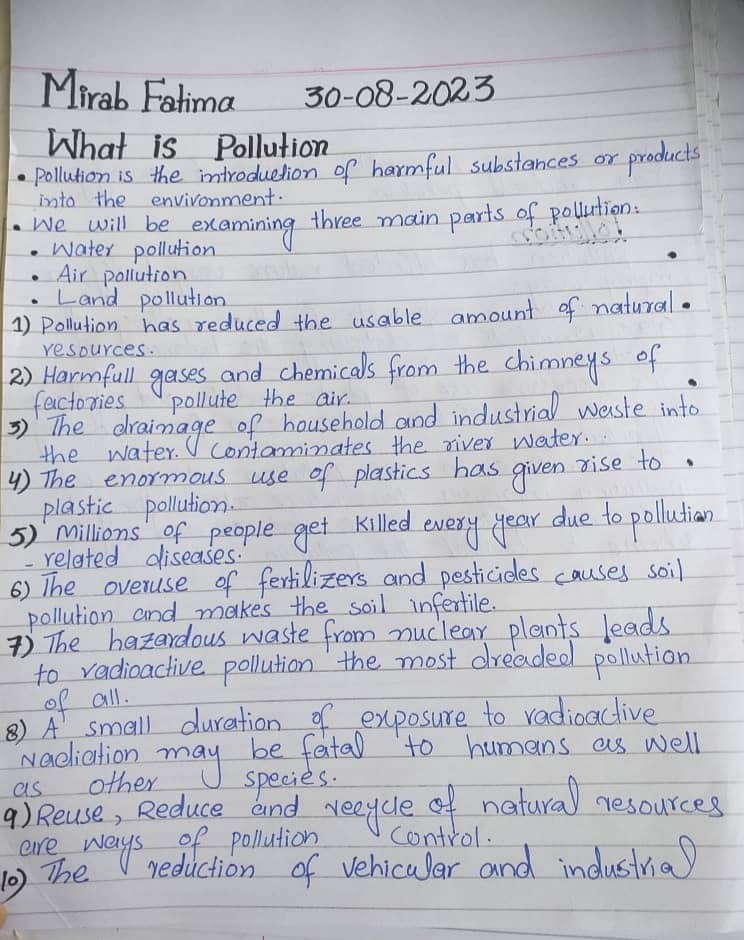 Mirab Fatima 30-08-2023
What is Pollution
• Pollution is the introduction of harmful substances or products
into the environment.
• We will be examining three main parts of pollution:
• Water pollution
• Air pollution
• Land pollution
1) Pollution has reduced the usable amount of natural
resources.
2) Harmfull gases and chemicals from the chimneys of
factories pollute the air.
3) The drainage of household and industrial waste into
the water. Contaminates the river water.
4) The enormous use of plastics has given rise to
plastic pollution.
5) Millions of people get killed every year due to pollution
- related diseases.
6) The overuse of fertilizers and pesticides causes soil
pollution and makes the soil infertile.
7) The hazardous waste from nuclear plants leads
to radioactive pollution the most dreaded pollution
of all.
8) A small duration of exposure to radioactive
Nadiation may be fatal to humans as well
as other species.
9) Reuse, Reduce and recycle of natural resources
are ways of pollution control.
10) The reduction of vehicular and industrial